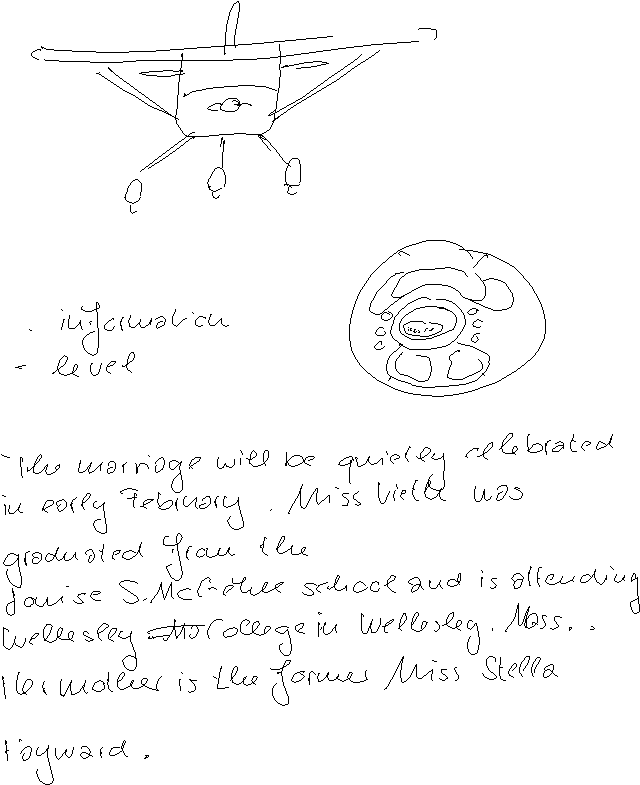 . information
- level
The marriage will be quietly celebrated
in early February. Miss Vieth was
graduated from the
Louise S. McGehee school and is attending
Wellesley College in Wellesley. Mass..
Her mother is the former Miss Stella
Hayward.